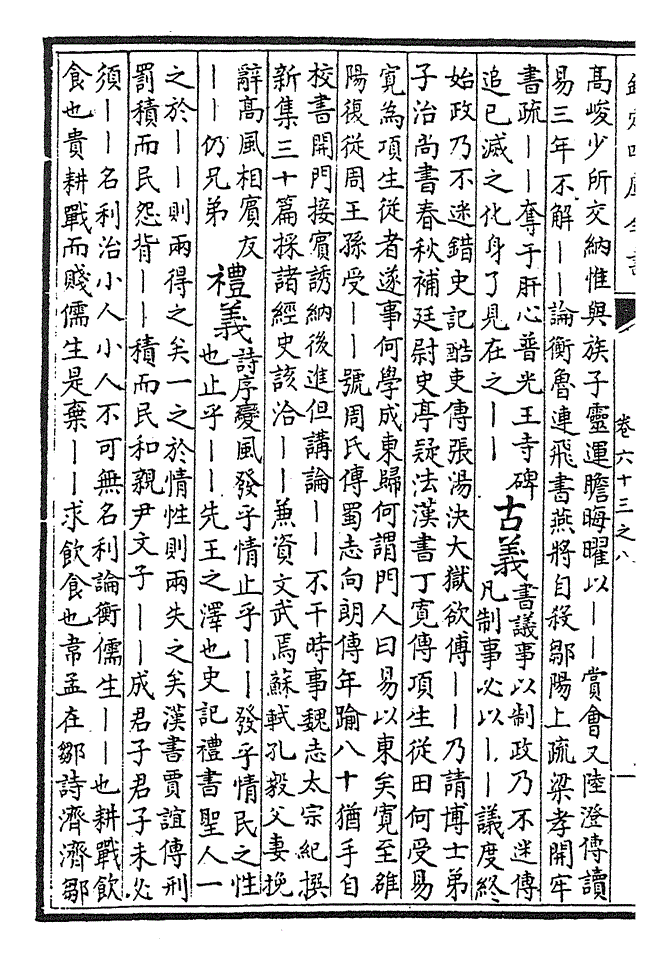 欽定四庫全書
卷六十三之八
高峻少所交納惟與族子靈運瞻晦曜以——賞會又陸澄傳讀
易三年不解——論衡魯連飛書燕將自殺鄒陽上疏梁孝開牢
書疏——奪于肝心普光王寺碑
追已滅之化身了見在之——
古義
書議事以制政乃不迷傳
凡制事必以——議度終
始政乃不迷錯史記酷吏傳張湯決大獄欲傅——乃請博士弟
子治尚書春秋補廷尉史亭疑法漢書丁寬傳項生從田何受易
寬為項生從者遂事何學成東歸何謂門人曰易以東矣寬至雒
陽復從周王孫受——號周氏傳蜀志向朗傳年踰八十猶手自
校書開門接賓誘納後進但講論——不干時事魏志太宗紀撰
新集三十篇採諸經史該洽——兼資文武焉蘇軾孔毅父妻挽
辭高風相賓友
——仍兄弟
禮義
詩序變風發乎情止乎——發乎情民之性
也止乎——先王之澤也史記禮書聖人一
之於——則兩得之矣一之於情性則兩失之矣漢書賈誼傳刑
罰積而民怨背——積而民和親尹文子——成君子君子未必
須——名利治小人小人不可無名利論衡儒生——也耕戰飲
食也貴耕戰而賤儒生是棄——求飲食也韋孟在鄒詩濟濟鄒